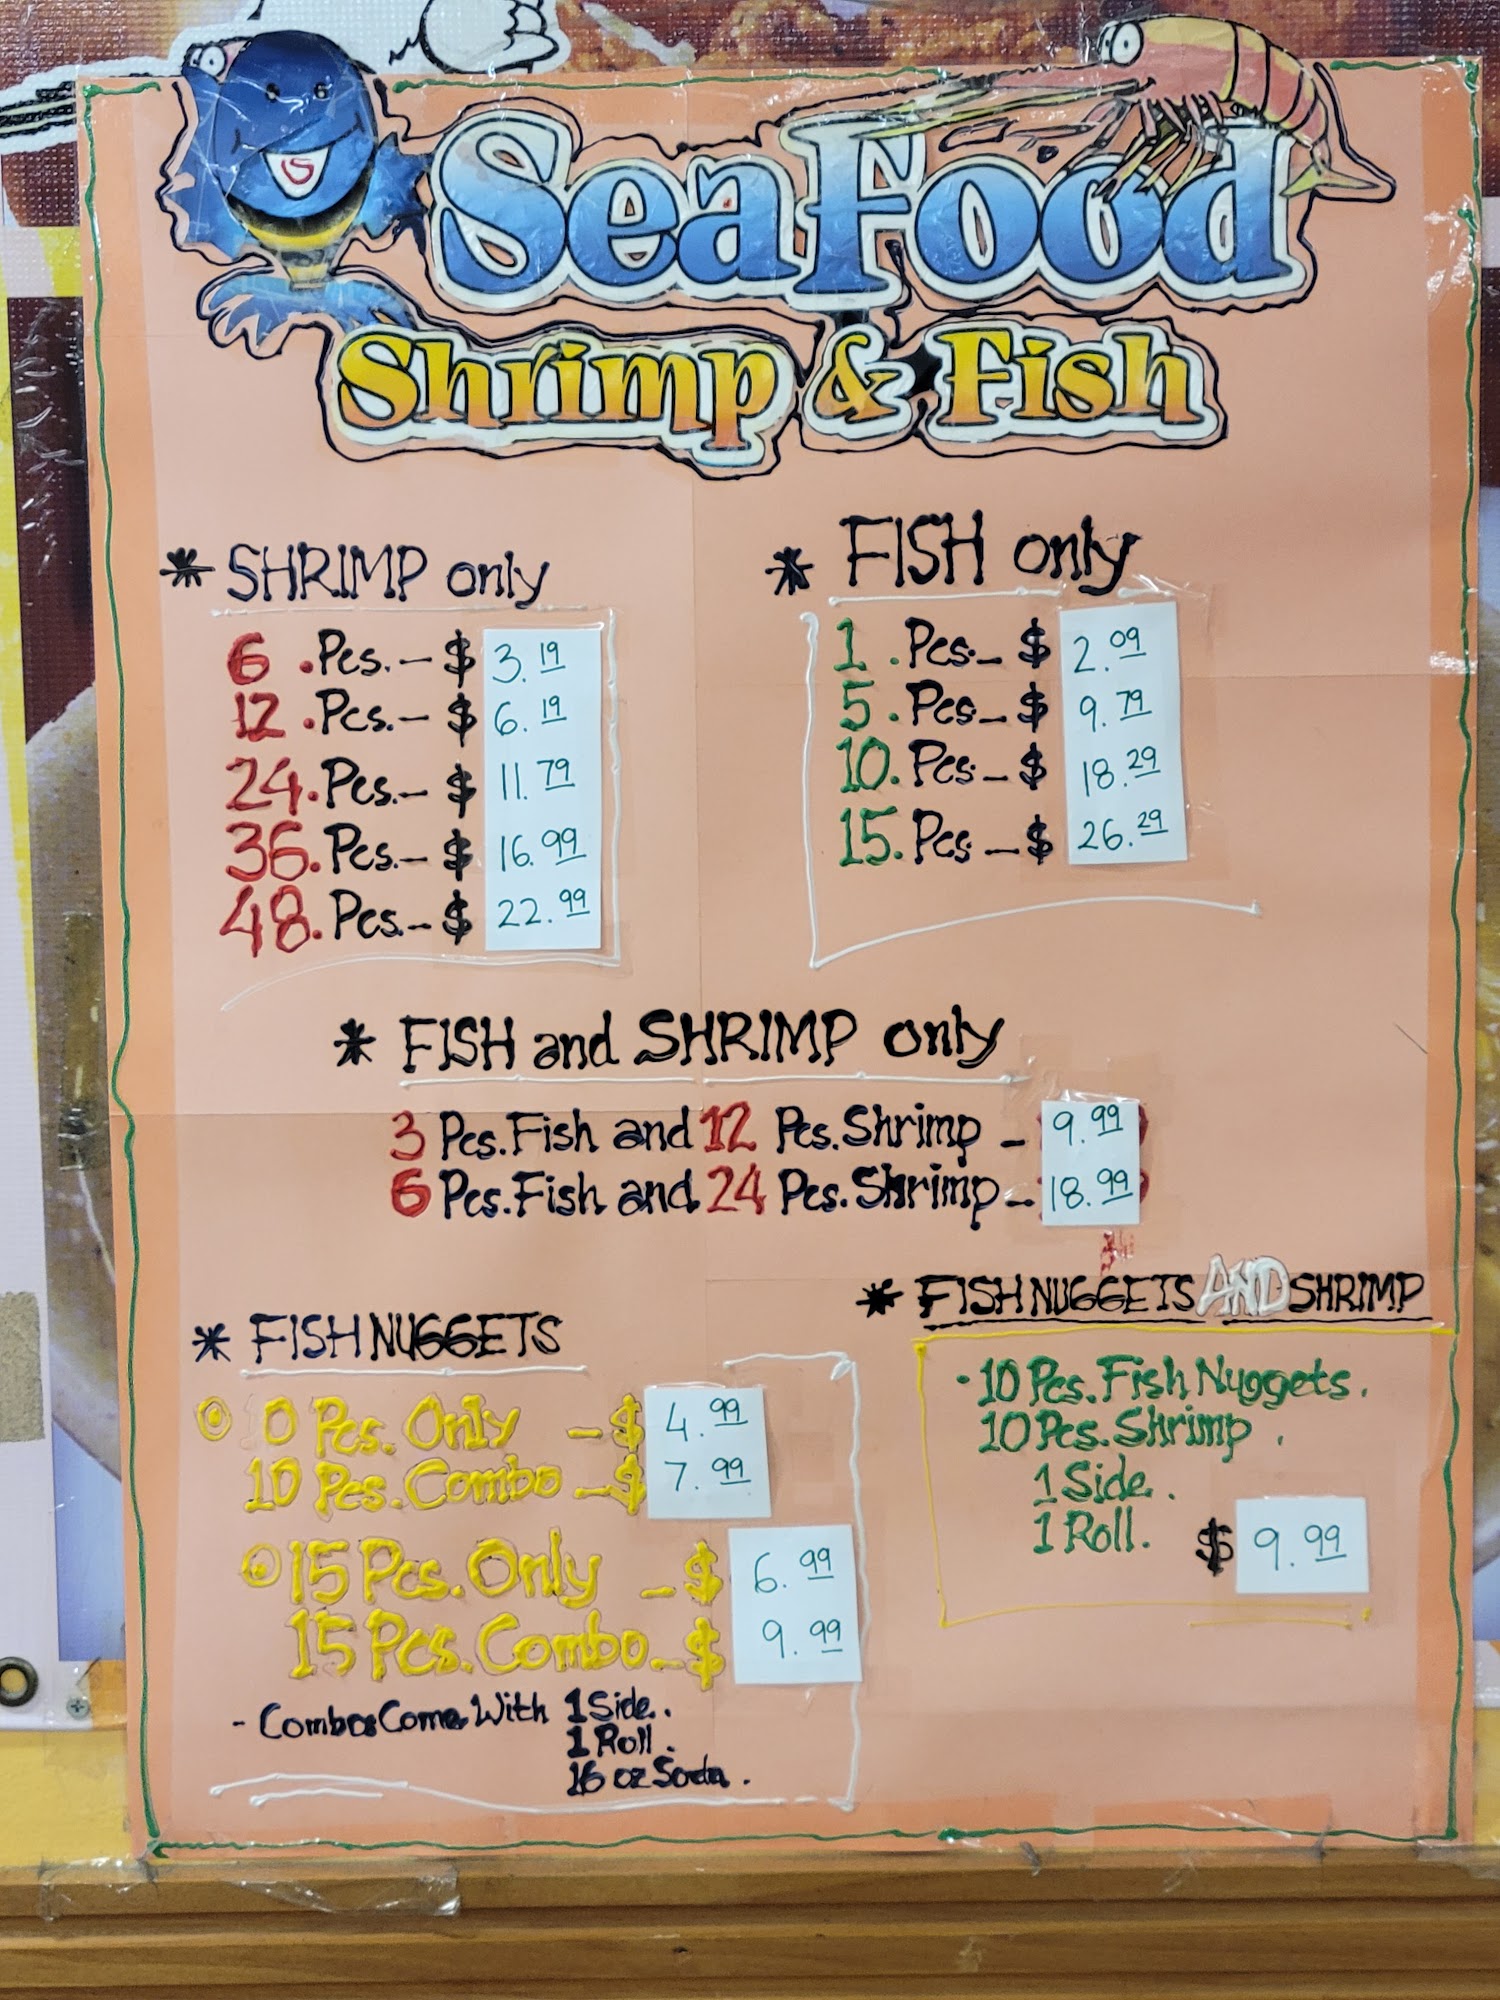 SeaFood
Shrimp & Fish
* SHRIMP only
6 .Pcs. - $ 3.19
12 .Pcs. - $ 6.19
24.Pcs. - $ 11.79
36.Pcs. - $ 16.99
48.Pcs. - $ 22.99
* FISH only
1 .Pcs. - $ 2.09
5 .Pcs - $ 9.79
10. Pcs - $ 18.29
15. Pcs - $ 26.29
* FISH and SHRIMP only
3 Pcs. Fish and 12 Pcs. Shrimp - 9.99
6 Pcs. Fish and 24 Pcs. Shrimp - 18.99
* FISH NUGGETS
10 Pcs. Only - $ 4.99
10 Pcs. Combo - $ 7.99
15 Pcs. Only - $ 6.99
15 Pcs. Combo - $ 9.99
- Combos Come With 1 Side.
1 Roll.
16 oz Soda.
* FISH NUGGETS AND SHRIMP
· 10 Pcs. Fish Nuggets.
10 Pcs. Shrimp.
1 Side.
1 Roll. $ 9.99